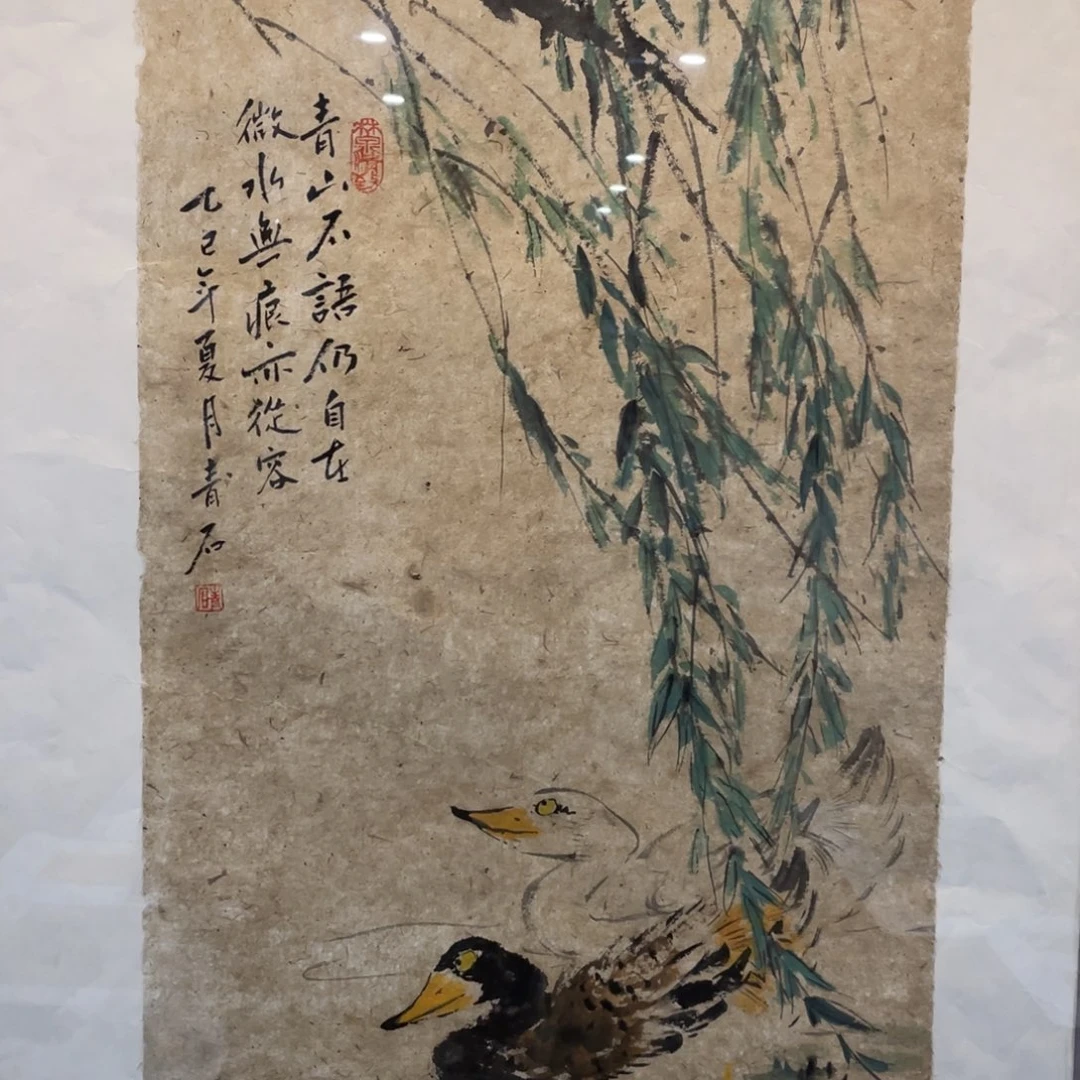 青山不語仍自在
微水無痕亦從容
乙巳年夏月青石